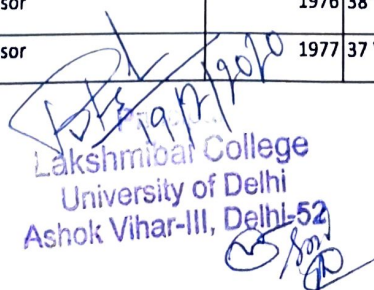 sor 1976 38
sor 1977 37
19/2/2020
Lakshmibai College
University of Delhi
Ashok Vihar-III, Delhi-52